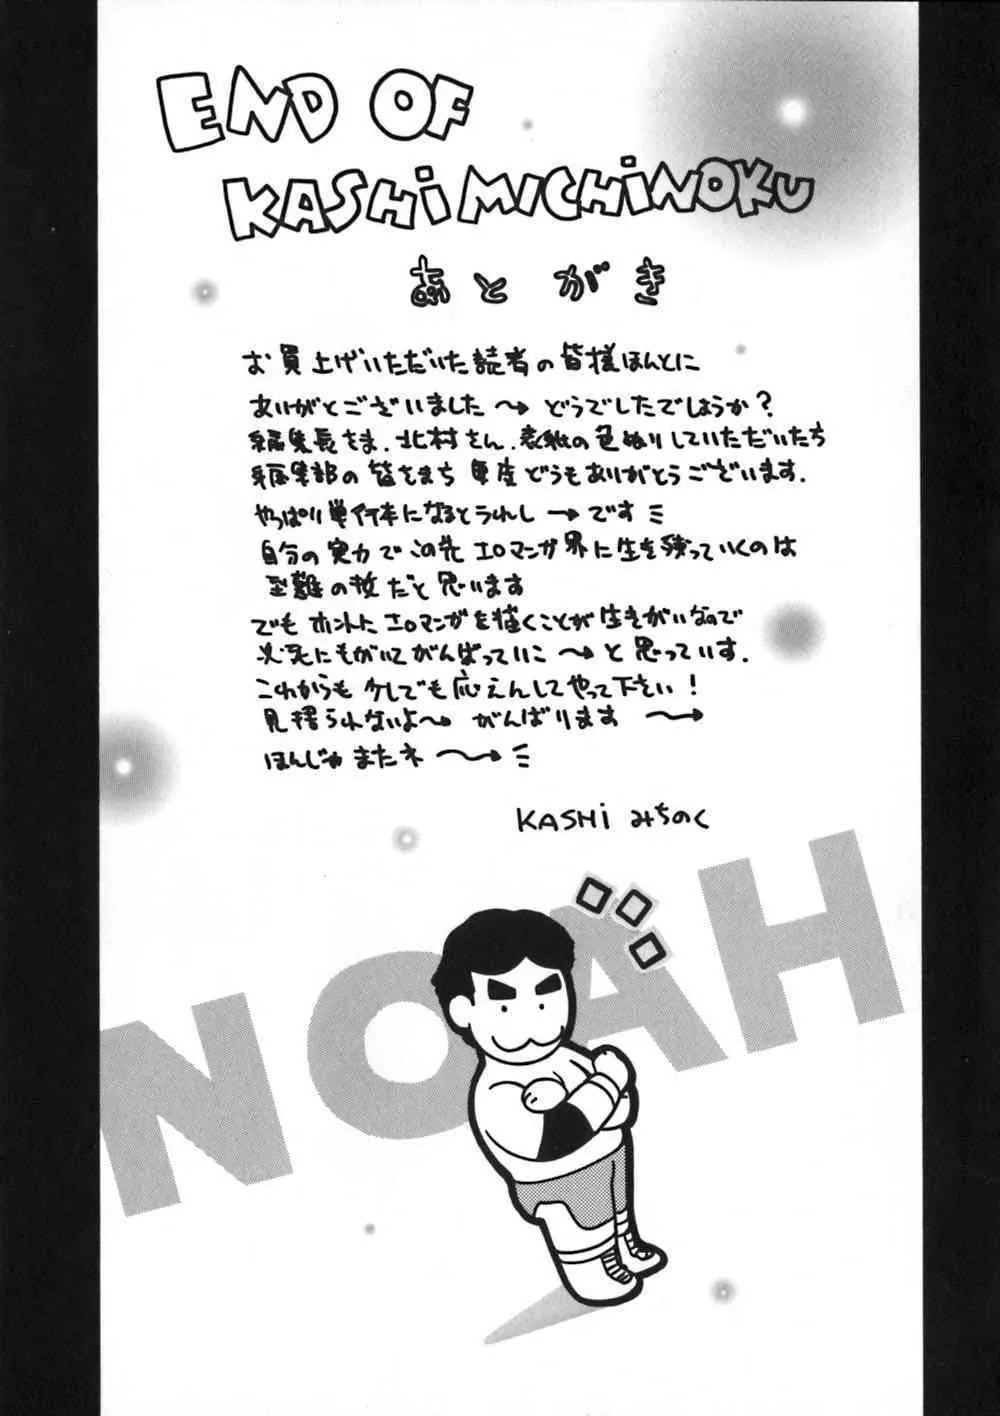 END OF
KASHIMICHINOKU
あとがき
お買上げいただいた読者の皆様ほんとに
ありがとございました〜 どうでしたでしょうか?
編集長さま、北村さん、表紙の色ぬりしていただいたち
編集部の皆さまち 毎度どうもありがとうございます。
やっぱり単行本になるとうれし〜です
自分の実力でこの先エロマンガ界に生き残っていくのは
至難の技だと思います
でもホントにエロマンガを描くことが生きがいなので
必死にもがいてがんばっていこ〜と思っていす.
これからも少しでも応えんしてやって下さい!
見捨られないよ〜 がんばります 〜
ほんじゃまたネ〜
KASHIみちのく
NOAH